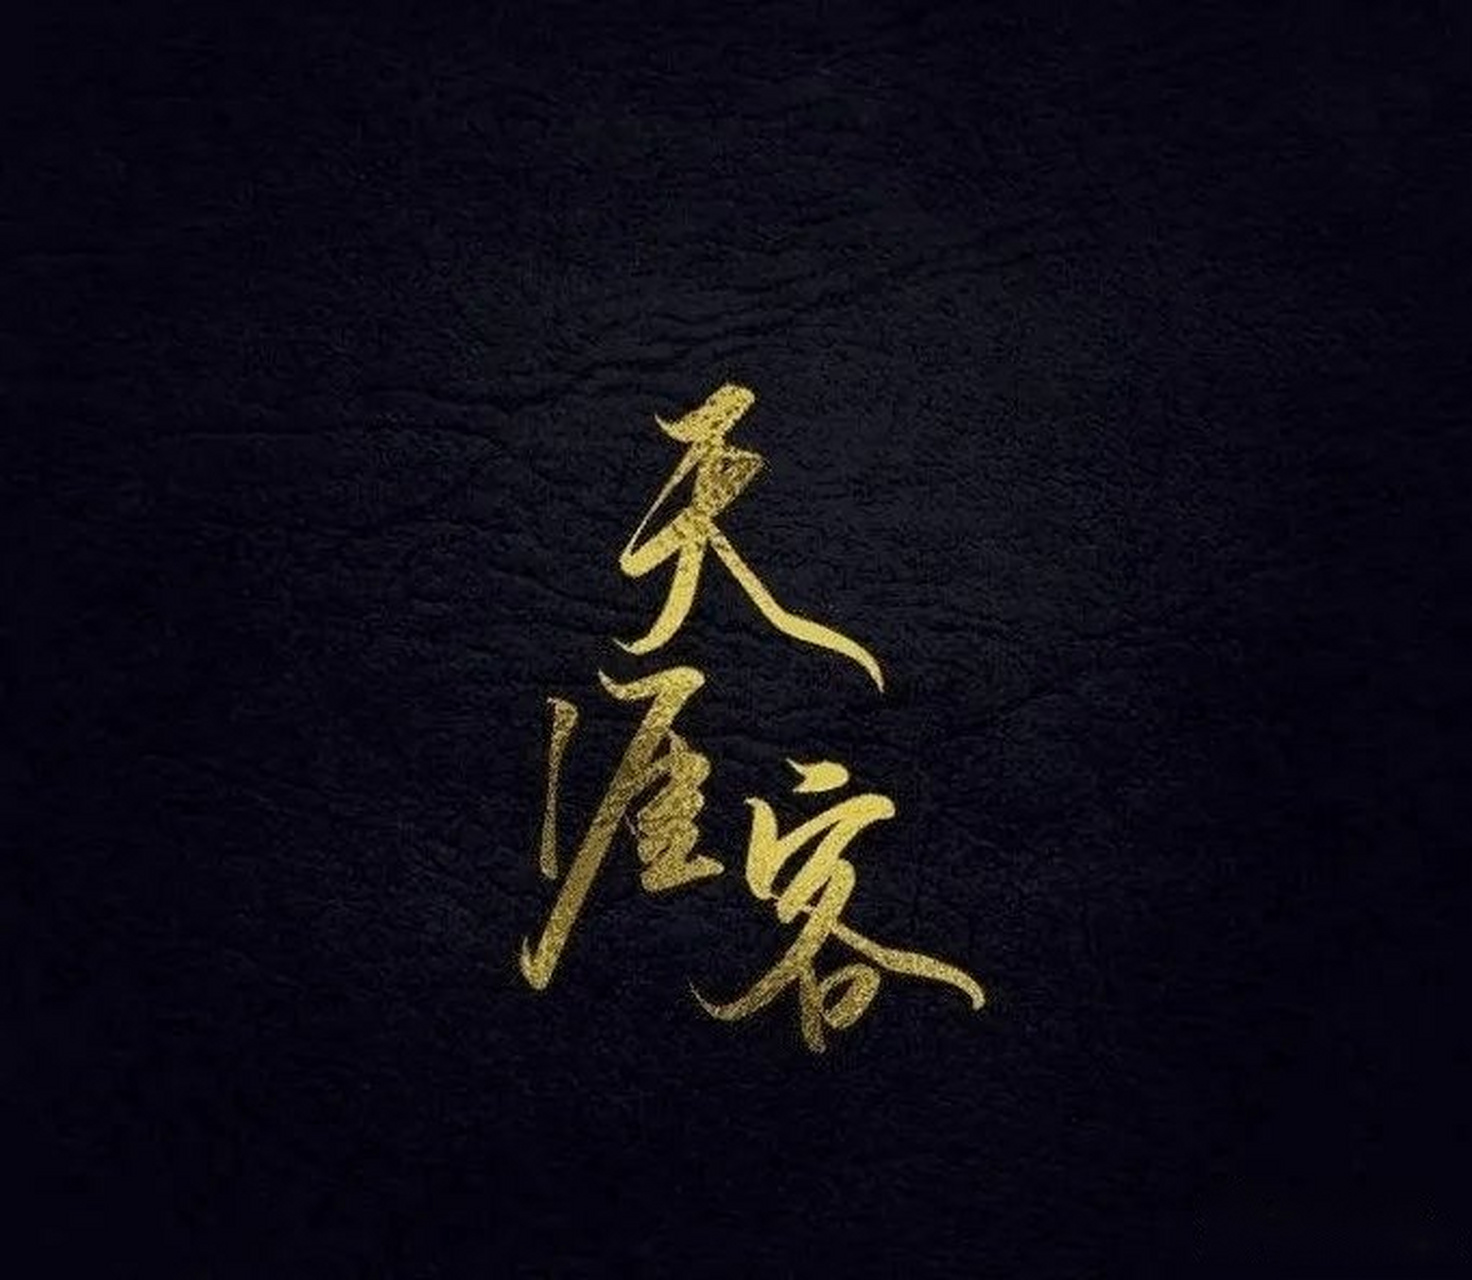 天
涯客